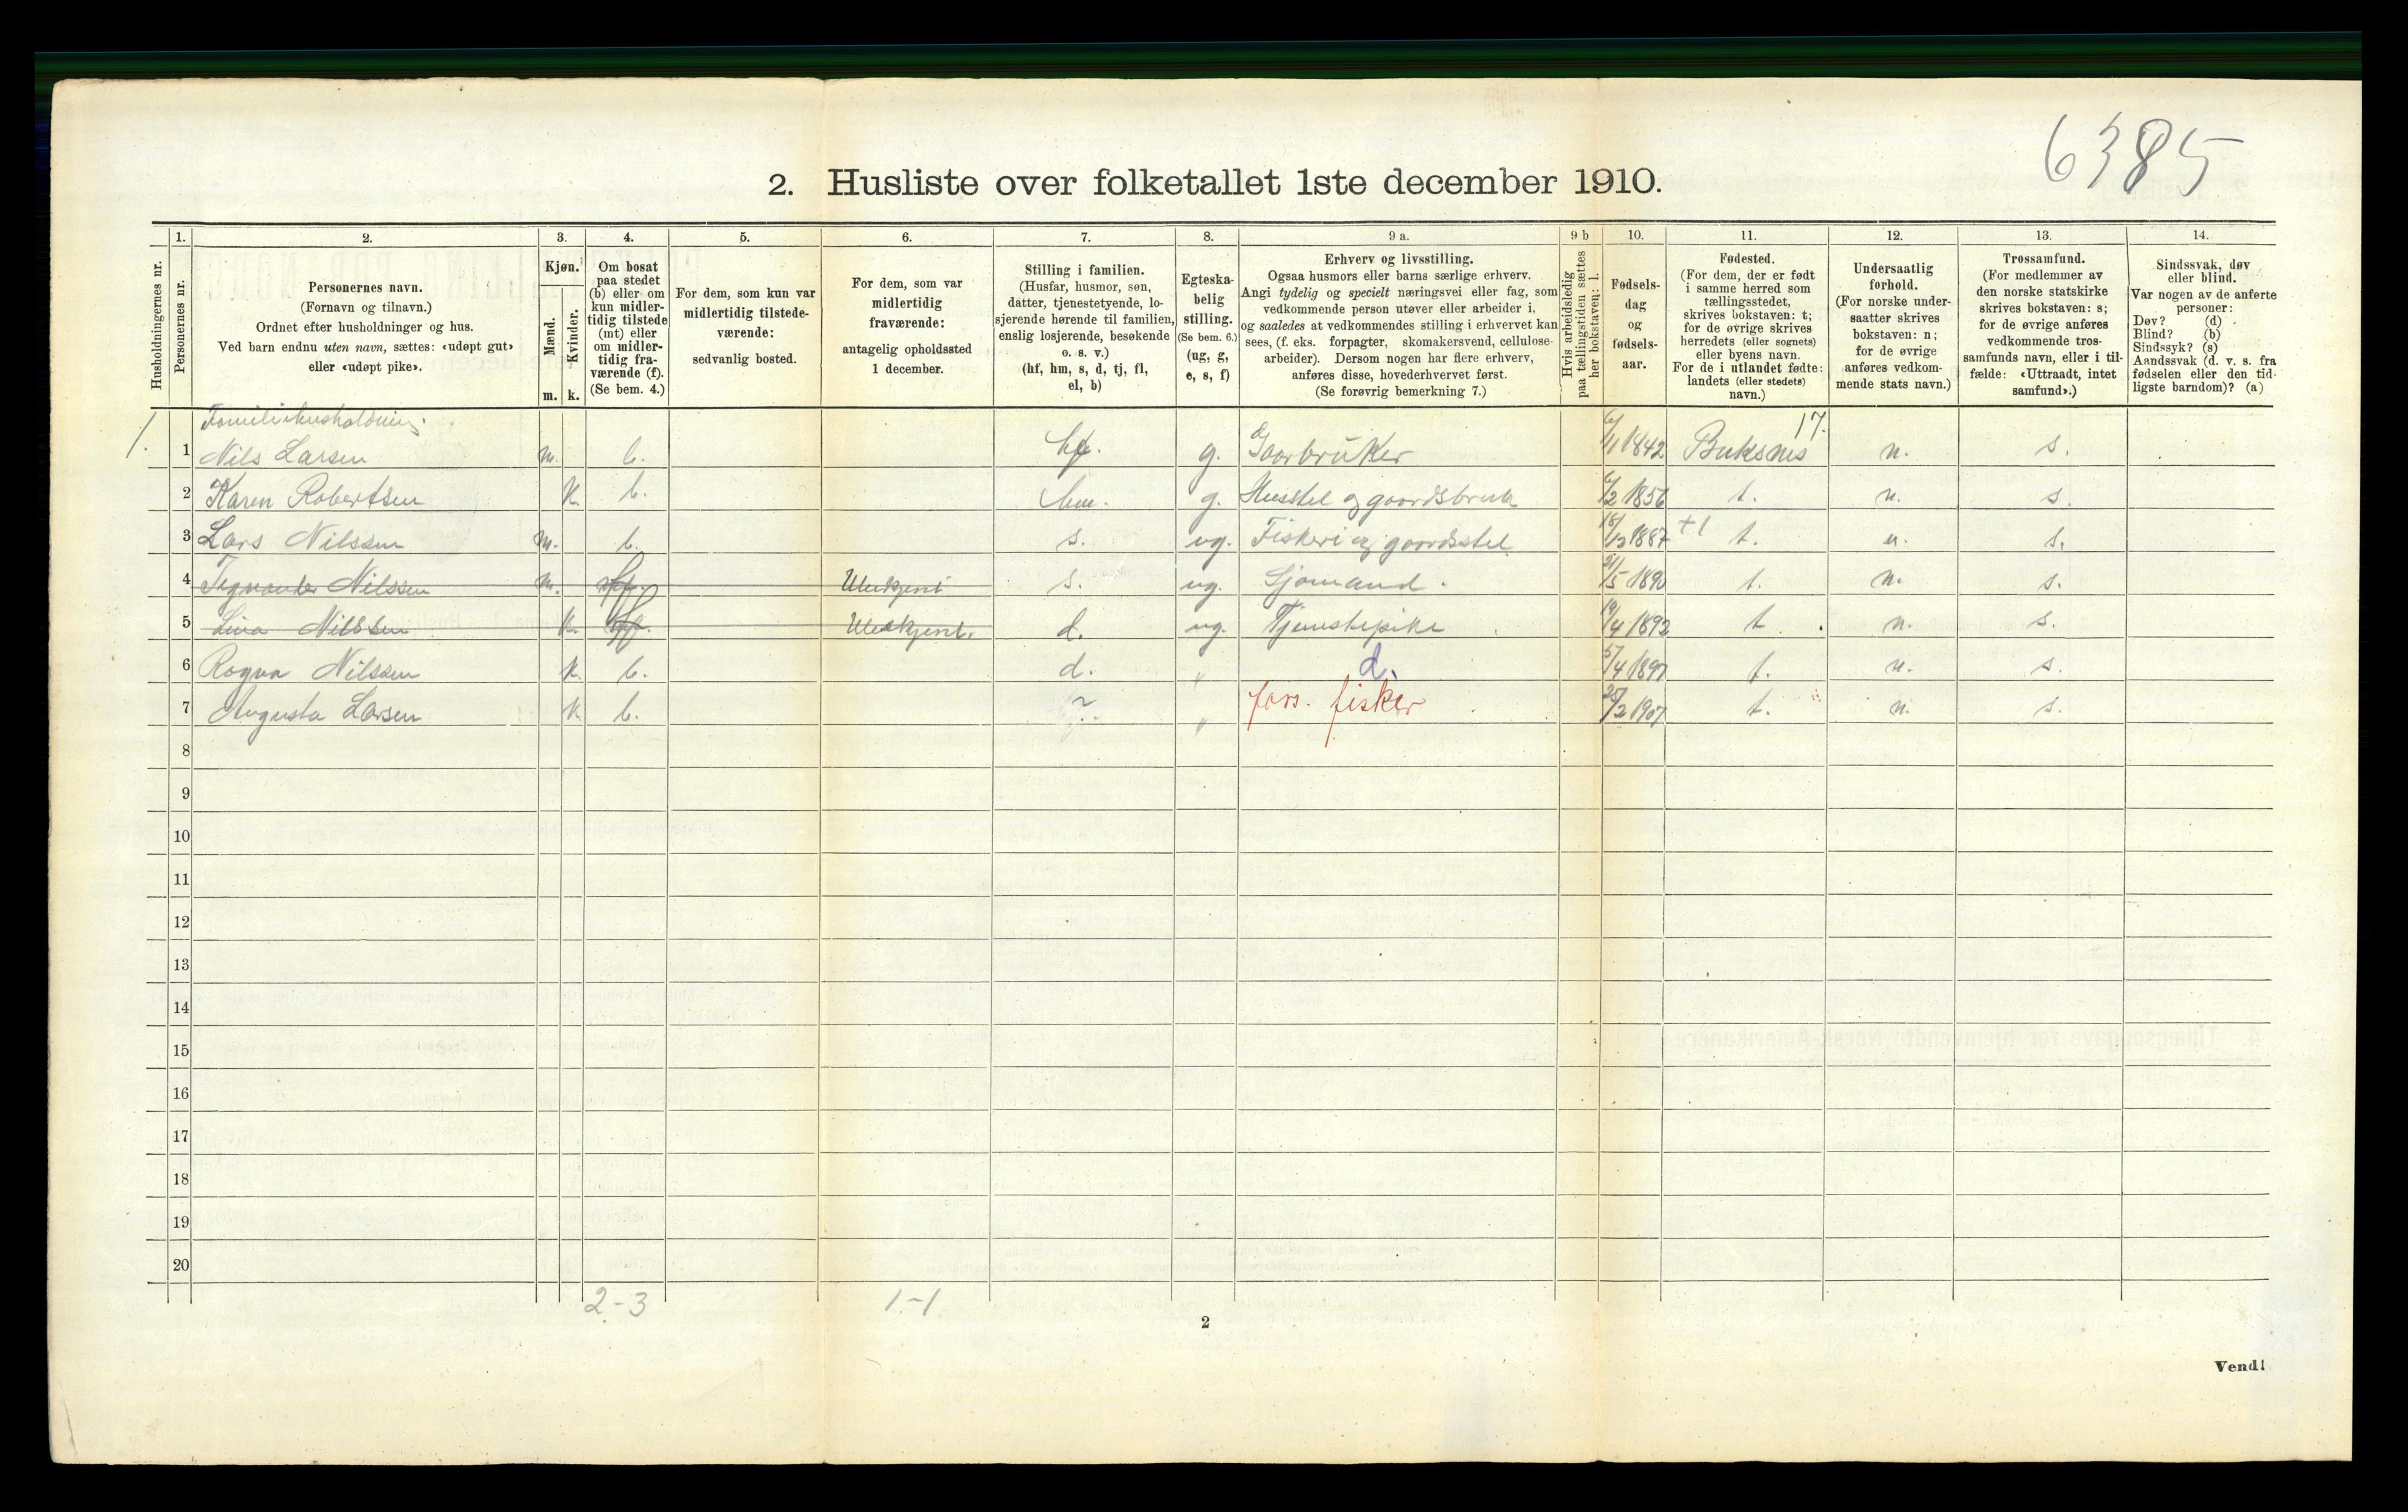 6385
2. Husliste over folketallet 1ste december 1910.
Husholdningernes nr.
1.
Personernes nr.
2.
Personernes navn.
(Fornavn og tilnavn.)
Ordnet efter husholdninger og hus.
Ved barn endnu uten navn, sættes: «udøpt gut»
eller «udøpt pike».
3.
Kjøn.
Mænd.
Kvinder.
m. k.
4.
Om bosat
paa stedet
(b) eller om
kun midler-
tidig tilstede
(mt) eller
om midler-
tidig fra-
værende (f).
(Se bem. 4.)
5.
For dem, som kun var
midlertidig tilstede-
værende:
sedvanlig bosted.
6.
For dem, som var
midlertidig
fraværende:
antagelig opholdssted
1 december.
7.
Stilling i familien.
(Husfar, husmor, søn,
datter, tjenestetyende, lo-
sjerende hørende til familien,
enslig losjerende, besøkende
o. s. v.)
(hf, hm, s, d, tj, fl,
el, b)
8.
Egteska-
belig
stilling.
(Se bem. 6.)
(ug, g,
e, s, f)
9 a.
Erhverv og livsstilling.
Ogsaa husmors eller barns særlige erhverv.
Angi tydelig og specielt næringsvei eller fag, som
vedkommende person utøver eller arbeider i,
og saaledes at vedkommendes stilling i erhvervet kan
sees, (f. eks. forpagter, skomakersvend, cellulose-
arbeider). Dersom nogen har flere erhverv,
anføres disse, hovederhvervet først.
(Se forøvrig bemerkning 7.)
9 b
Hvis arbeidsledig
paa tællingstiden sættes
her bokstaven: l.
10.
Fødsels-
dag
og
fødsels-
aar.
11.
Fødested.
(For dem, der er født
i samme herred som
tællingsstedet,
skrives bokstaven: t;
for de øvrige skrives
herredets (eller sognets)
eller byens navn.
For de i utlandet fødte:
landets (eller stedets)
navn.)
12.
Undersaatlig
forhold.
(For norske under-
saatter skrives
bokstaven: n;
for de øvrige
anføres vedkom-
mende stats navn.)
13.
Trossamfund.
(For medlemmer av
den norske statskirke
skrives bokstaven: s;
for de øvrige anføres
vedkommende tros-
samfunds navn, eller i til-
fælde: «Uttraadt, intet
samfund».)
14.
Sindssvak, døv
eller blind.
Var nogen av de anførte
personer:
Døv? (d)
Blind? (b)
Sindssyk? (s)
Aandssvak (d. v. s. fra
fødselen eller den tid-
ligste barndom)? (a)
Familiehusholdning. 17.
1. 1 Nils Larsen m. b. hf. g. Gaardbruker 1842 Buksnes n. s.
2 Karen Robertsen k. b. hm. g. Husstel og gaardsbruk 1856 t. n. s.
3 Lars Nilssen m. b. s. ug. Fiskeri og gaardsstel 1887 +1 t. n. s.
4 Nilssen m. Ubekjent s. ug. Sjømand. 1890 t. n. s.
5 Lina Nilssen k. Ubekjent. d. ug. Tjenestepike 19/4 1892 t. n. s.
6 Ragna Nilssen k. b. d. " d. 5/4 1897 t. n. s.
7 Augusta Larsen k. b. ? " fors. fisker 1907 t. n. s.
8
9
10
11
12
13
14
15
16
17
18
19
20
2-3 1-1
2
Vend!